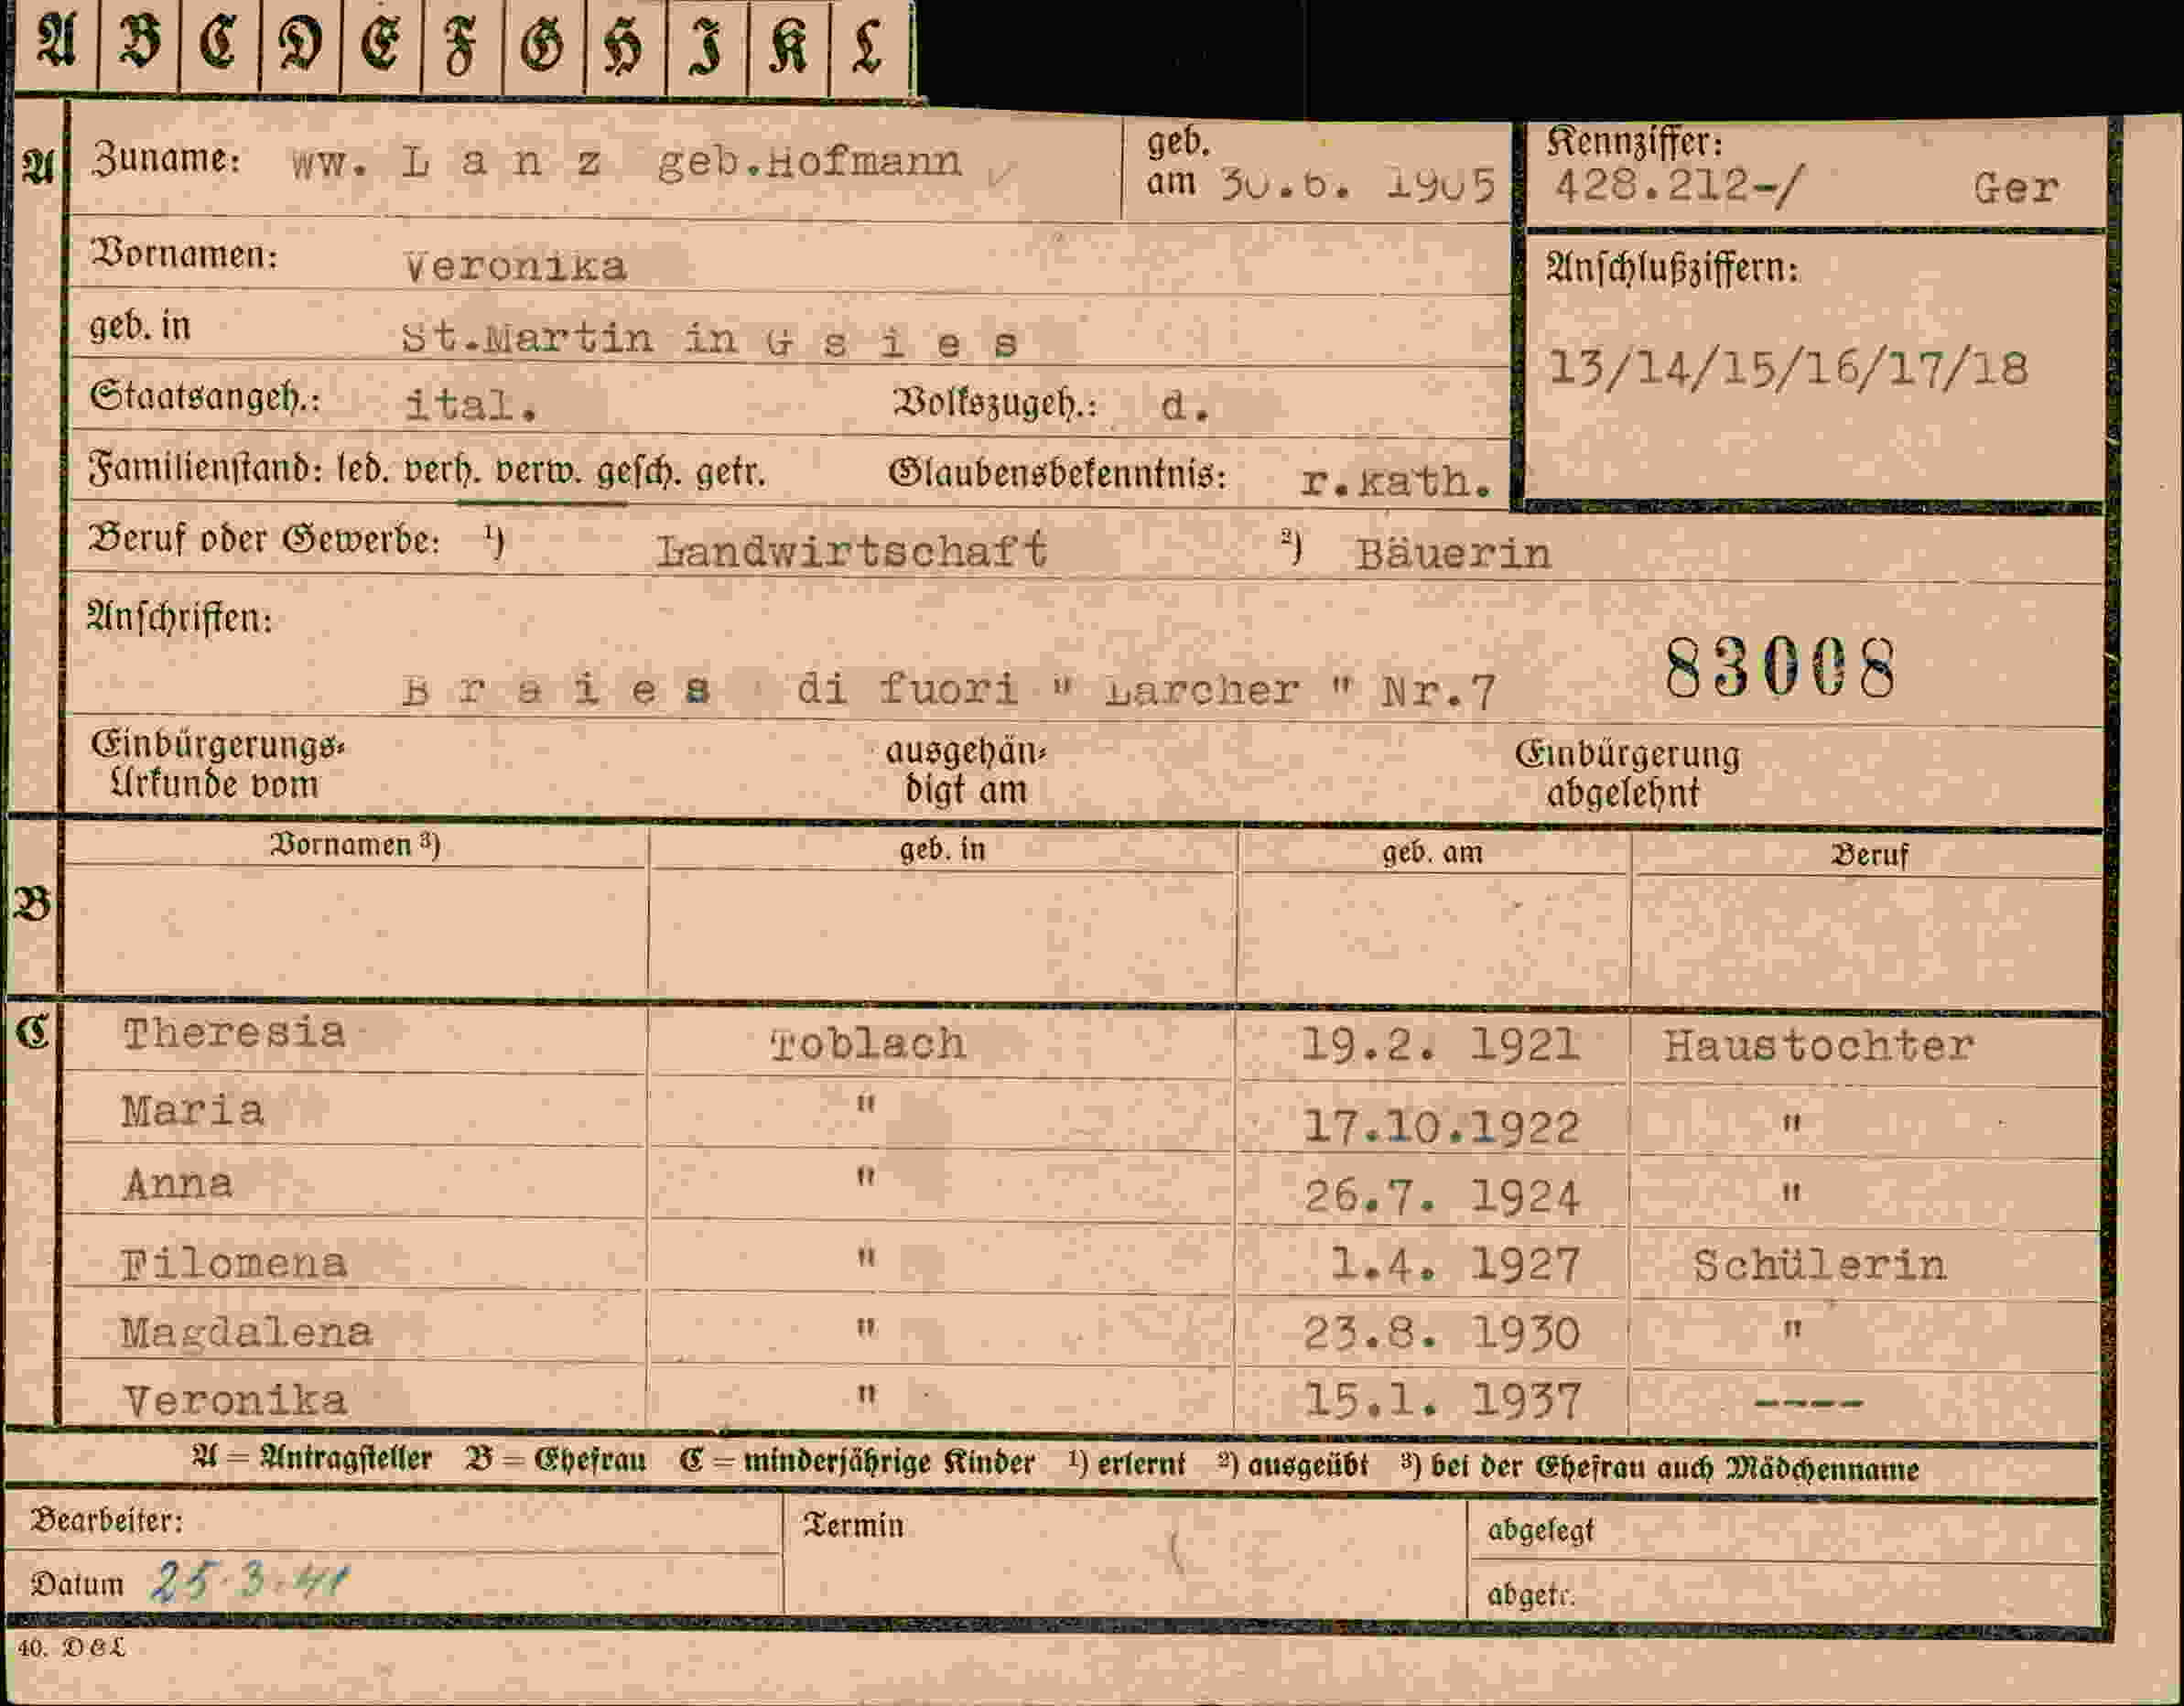 A B C D E F G H J K L
A Zuname: ww. L a n z geb.Hofmann geb. am 30.6. 1905 Kennziffer: 428.212-/ Ger
Vornamen: Veronika Anschlußziffern:
geb. in St.Martin in G s i e s 13/14/15/16/17/18
Staatsangeh.: ital. Volkszugeh.: d.
Familienstand: led. verh. verw. gesch. getr. Glaubensbekenntnis: r.kath.
Beruf oder Gewerbe: ¹) Landwirtschaft ²) Bäuerin
Anschriften:
B r a i e s di fuori " Larcher " Nr.7 83008
Einbürgerungs- ausgehän- Einbürgerung
Urkunde vom digt am abgelehnt
Vornamen ³) geb. in geb. am Beruf
B
C Theresia Toblach 19.2. 1921 Haustochter
Maria " 17.10.1922 "
Anna " 26.7. 1924 "
Filomena " 1.4. 1927 Schülerin
Magdalena " 23.8. 1930 "
Veronika " 15.1. 1937 ----
A = Antragsteller B = Ehefrau C = minderjährige Kinder ¹) erlernt ²) ausgeübt ³) bei der Ehefrau auch Mädchenname
Bearbeiter: Termin abgelegt
Datum 25.3.41 abgetr.
40. DEL